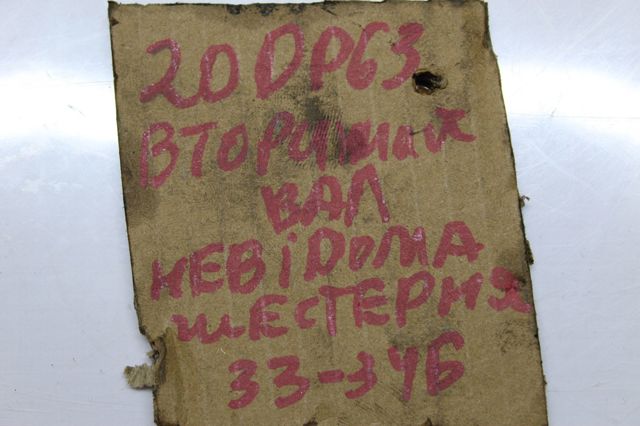 20DP63
ВТОРИЧНИЙ
ВАЛ
НЕВіДОМА
ШЕСТЕРНЯ
33-ЗУБ